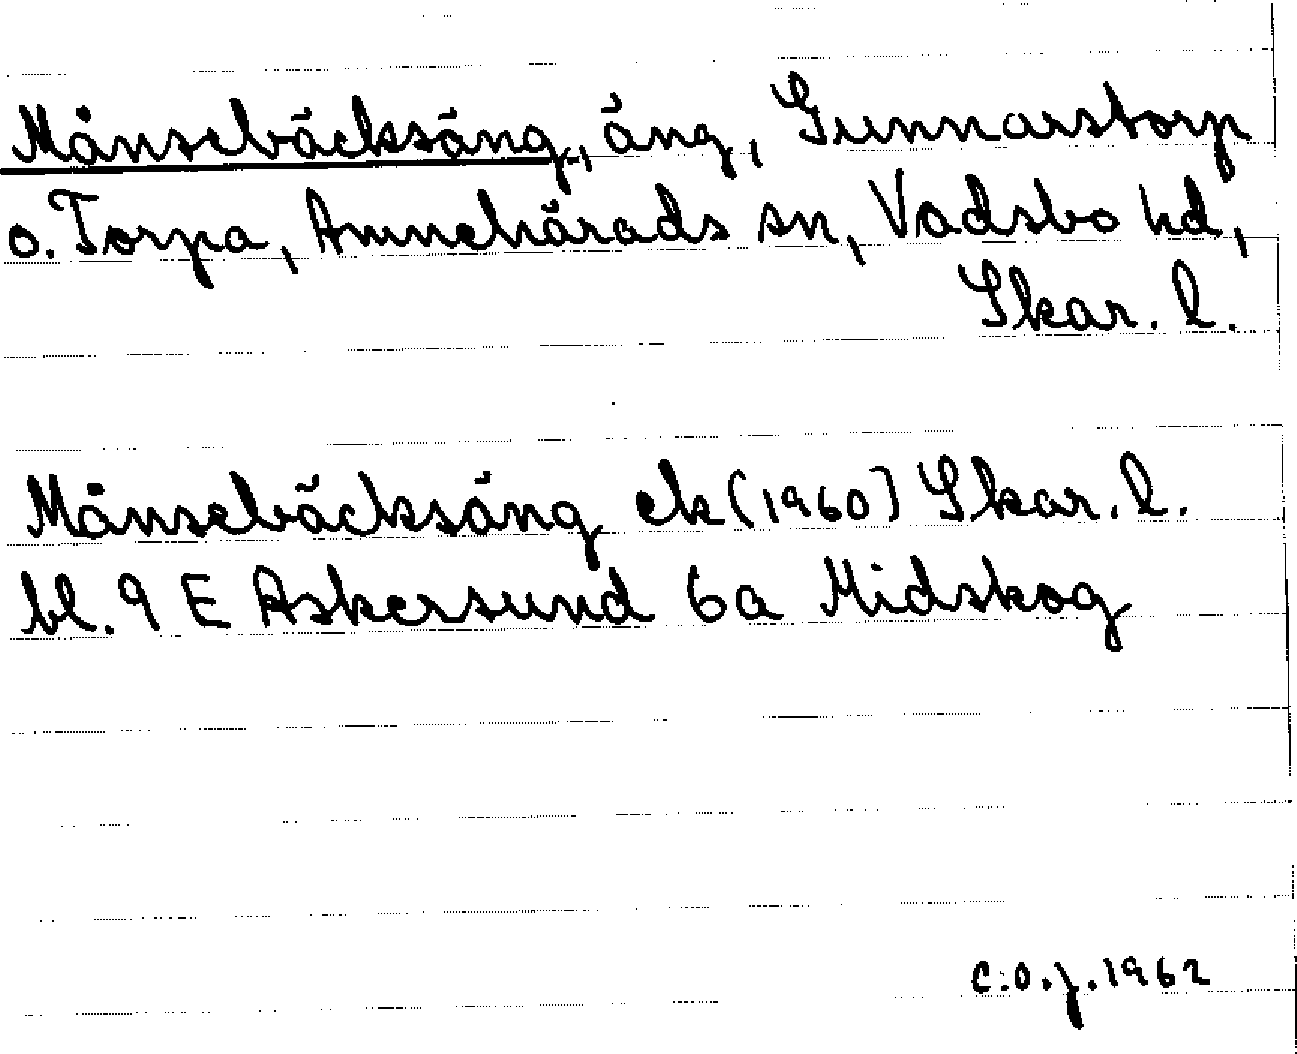 Månsebäcksäng, äng, Gunnarstorp
o. Torpa, Amnehärads sn, Vadsbo hd,
Skar. l.
Månsebäcksäng ek (1960) Skar. l.
bl. 9 E Askersund 6a Midskog
C.O.J. 1962